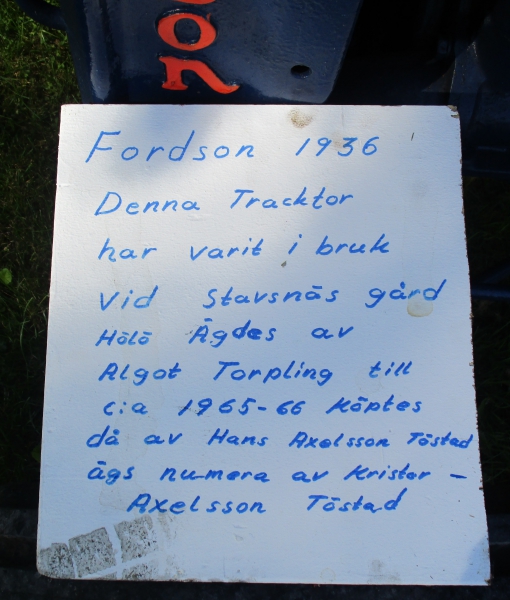 ON
Fordson 1936
Denna Tracktor
har varit i bruk
vid Stavsnäs gård
Hölö Ägdes av
Algot Torpling till
c:a 1965-66 Köptes
då av Hans Axelsson Töstad
ägs numera av Krister -
Axelsson Töstad